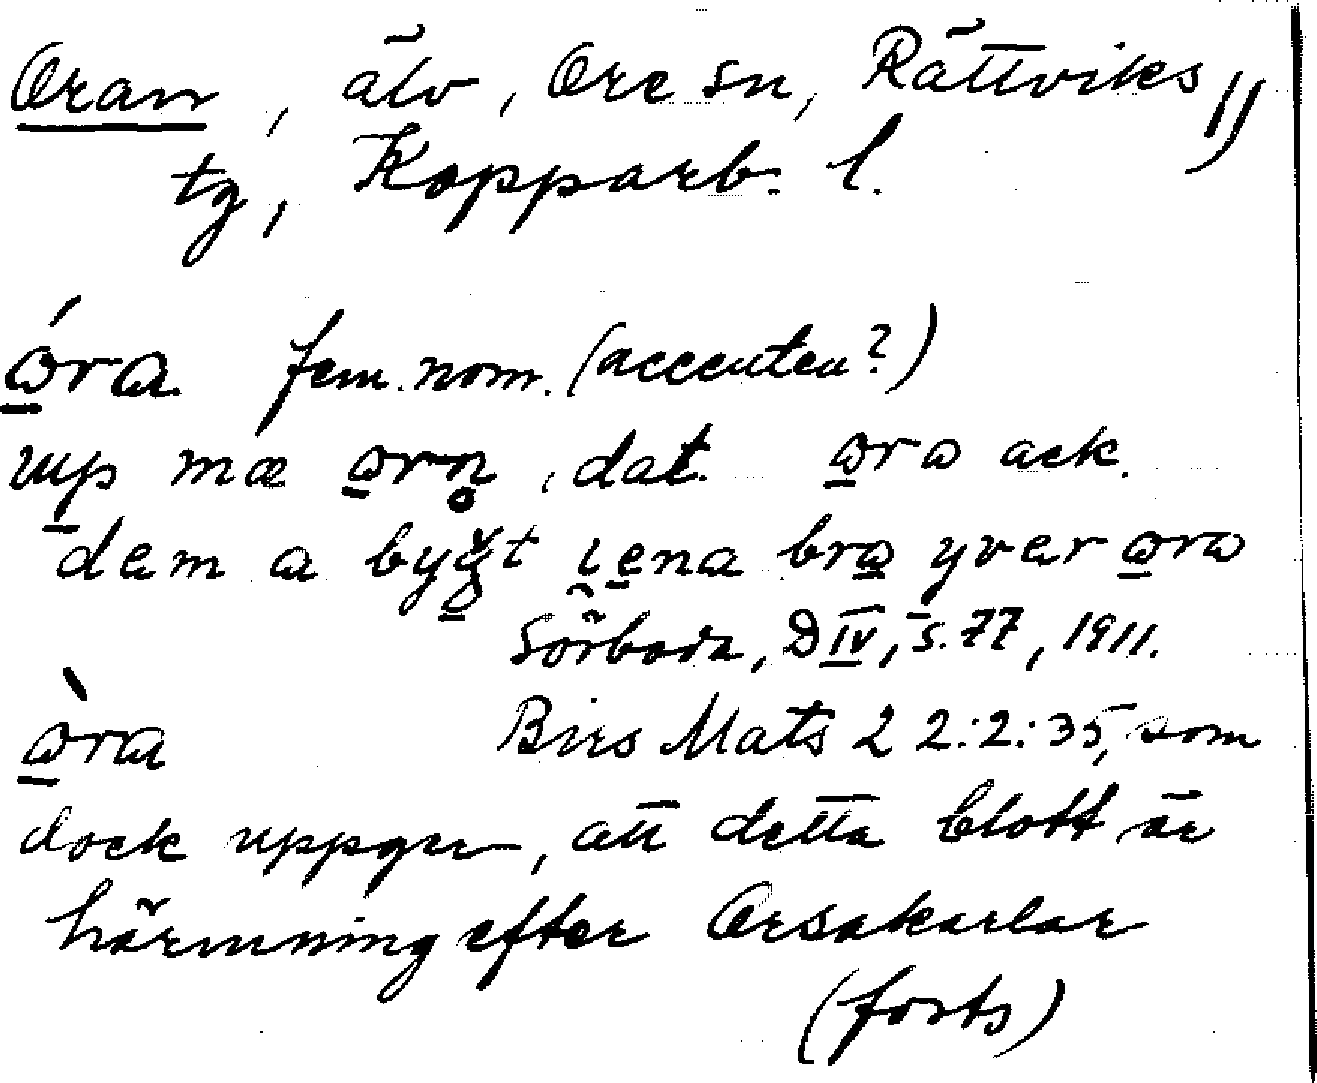 Oran, älv, Ore sn, Rättviks
tg, Kopparb. l.
ǫ́ra fem. nom. (accenten?)
up mæ ǫrn̥, dat. ǫrɷ ack.
dem a byg̣t i̯ęna brǫ yver ǫrɷ
Sörboda, D IV, s. 77, 1911.
ǫ̀ra Birs Mats 22:2:35, som
dock uppger, att detta blott är
härmning efter Orsakarlar
(forts)